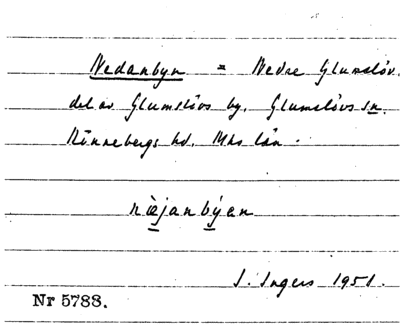 Nedanbyn = Nedre Glumslöv.
del av Glumslövs by. Glumslövs sn.
Rönnebergs hd. Mhs län.
nèjanbýen
I. Ingers 1951.
Nr 5788.